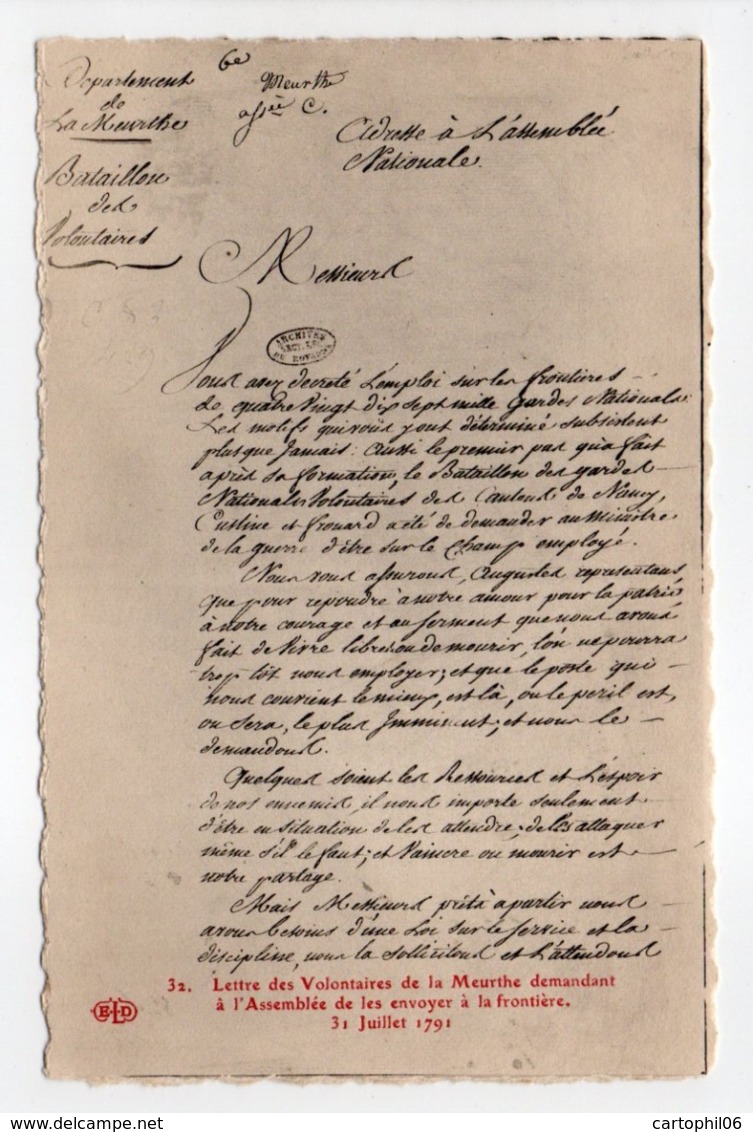 Departement
de
La Meurthe
Bataillon
des
Volontaires
6e Meurthe
C.
Adresse à L'assemblée
Nationale.
Messieurs
ARCHIVES
DU ROYAUME
Vous avez decreté L'emploi sur les frontieres
de quatre Vingt dix sept mille gardes Nationales:
Les motifs qui vous y ont déterminé subsistent
plus que Jamais: Aussi le premier pas qu'a fait
après sa formation, le Bataillon des gardes
Nationales Volontaires des Cantons de Nancy,
Custine et frouard a été de demander au Ministre
de la guerre d'être sur le Champ employé.
Nous vous assurons, Augustes representans
que pour repondre à notre amour pour la patrie
à notre courage et au serment que nous avons
fait de Vivre libres ou de mourir, l'on ne pourra
trop tôt nous employer; et que le poste qui
nous convient le mieux, est là, ou le peril est,
ou sera, le plus Imminent; et nous le
demandons.
Quelques soient les Ressources et L'espoir
de nos ennemis, il nous importe seulement
d'être en situation de les attendre, de les attaquer
même s'il le faut; et Vaincre ou mourir est
notre partage.
Mais Messieurs prêts à partir nous
avons besoins d'une Loi sur le service et la
discipline, nous la sollicitons et L'attendons
32. Lettre des Volontaires de la Meurthe demandant
à l'Assemblée de les envoyer à la frontière.
31 Juillet 1791
ELD
cartophil06